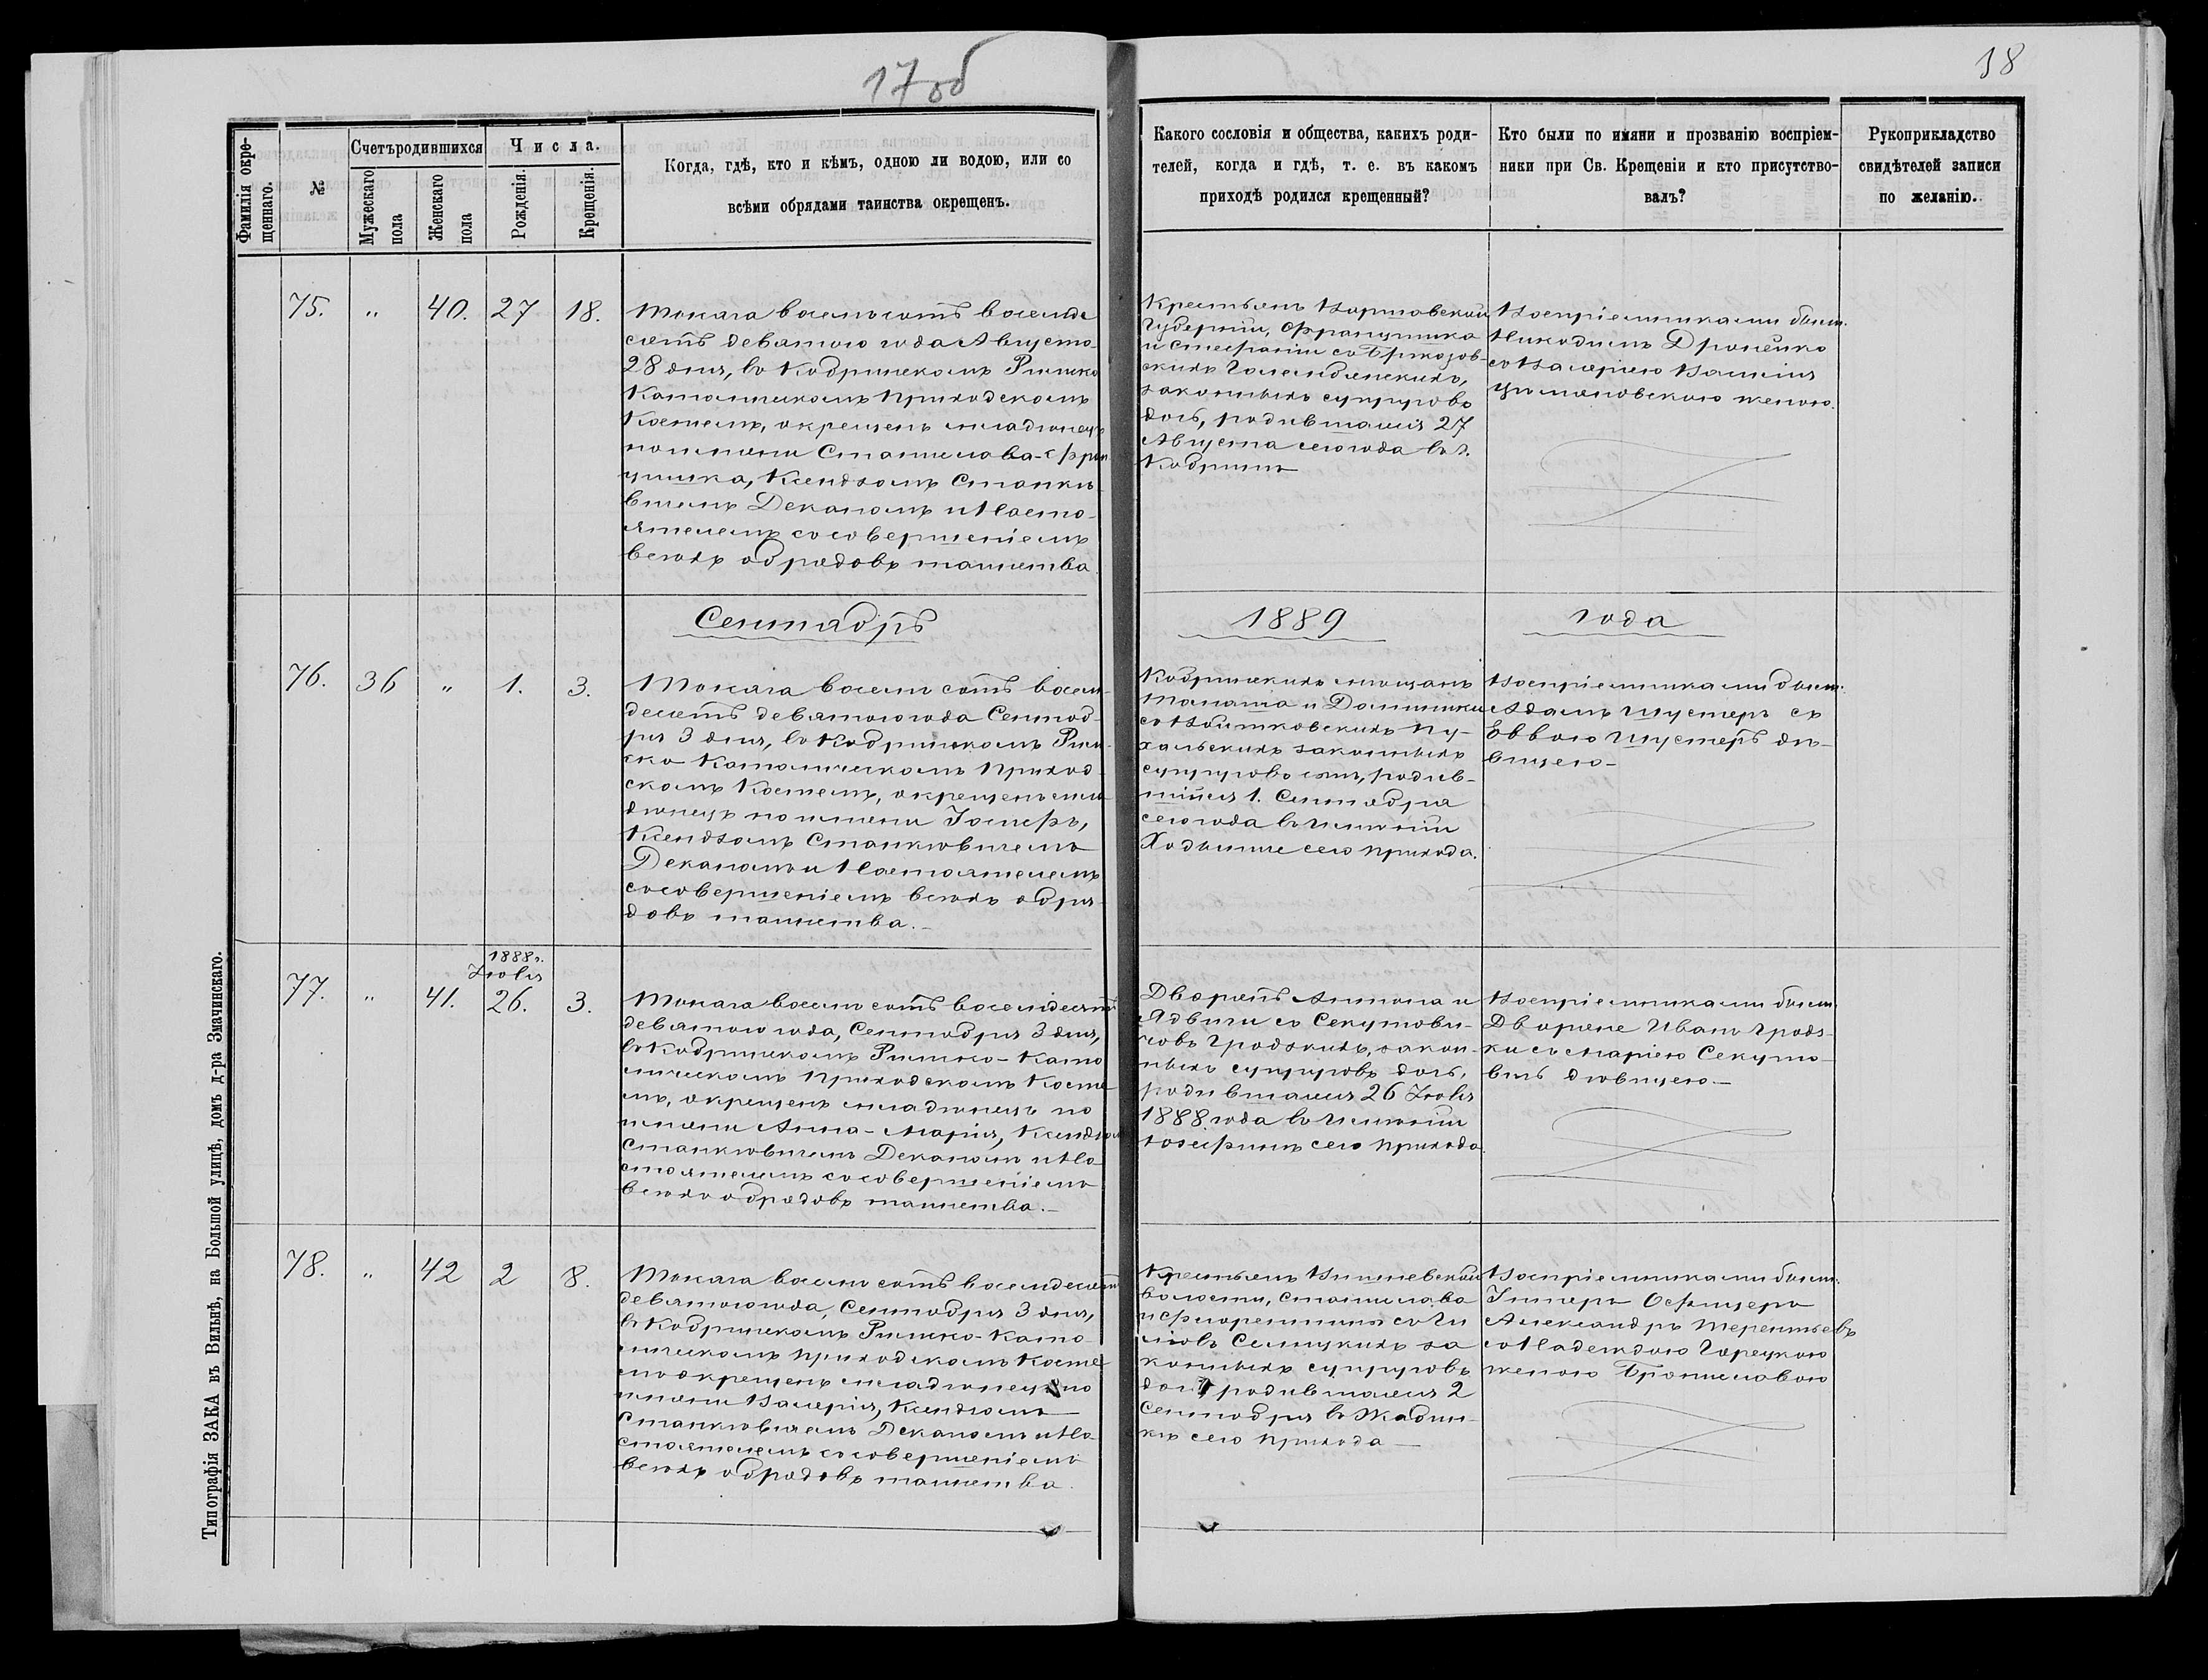 17 об
18
Фамилія окре-
щеннаго.
№
Счетъ родившихся
Мужескаго
пола
Женскаго
пола
Числа.
Рожденія.
Крещенія.
Когда, гдѣ, кто и кѣмъ, одною ли водою, или со
всѣми обрядами таинства окрещенъ.
Какого сословія и общества, какихъ роди-
телей, когда и гдѣ, т. е. въ какомъ
приходѣ родился крещенный?
Кто были по имяни и прозванію воспріем-
ники при Св. Крещеніи и кто присутство-
валъ?
Рукоприкладство
свидѣтелей записи
по желанію.
75. " 40. 27 18.
Тысяча восемьсотъ восемьде
сятъ девятого года Августа
28 дня, въ Кобринскомъ Римско
Католическомъ Приходскомъ
Костелѣ, окрещенъ младенецъ
по имени Станислава-Фран
цишка, Ксендзомъ Станке
вичемъ Деканомъ и Насто-
ятелемъ со совершеніемъ
всѣхъ обрядовъ таинства.
Крестьянъ Варшавской
Губерніи, Францишка
и Стефаніи
скихъ
законныхъ супруговъ
дочь, родившаяся 27
Августа сего года въ г.
Кобринѣ
Воспріемниками были
Никодимъ
со Валеріею
женою.
Сентябрь
1889
года
76. 36 " 1. 3.
Тысяча восемь сотъ восемь-
десятъ девятого года Сентяб-
ря 3 дня, въ Кобринскомъ Рим-
ско Католическомъ Приход-
скомъ Костелѣ, окрещенъ мла
денецъ по имени Іосифъ,
Ксендзомъ Станкевичемъ
Деканомъ и Настоятелемъ
со совершеніемъ всѣхъ обря-
довъ таинства.-
Кобринскихъ мѣщанъ
Игнатія и Доминики
со Войтковскихъ Пу-
хальскихъ законныхъ
супруговъ сынъ, родив-
шійся 1. Сентября
сего года въ имѣніи
сего прихода.
Воспріемниками были
Адамъ Шустеръ съ
Еввою Шустеръ дѣ-
вицею-
77. " 41.
1888 г.
Іюля
26. 3.
Тысяча восемь сотъ восемдесятъ
девятого года, Сентября 3 дня,
въ Кобринскомъ Римско-Като
лическомъ Приходскомъ Косте
лѣ, окрещенъ младенецъ по
имени Анна-Марія, Ксендзом
Станкевичемъ Деканомъ и На
стоятелемъ со совершеніемъ
всѣхъ обрядовъ таинства.-
Дворянъ Антона и
Ядвиги со Секутови-
човъ Гродзкихъ, закон-
ныхъ супруговъ дочь,
родившаяся 26 Іюля
1888 года въ имѣніи
Юзефинѣ сего прихода.
Воспріемниками были
Дворяне Иванъ Гродз-
ки съ Маріею Секуто-
вичъ дѣвицею.-
78. " 42 2 8.
Тысяча восемь сотъ восемдесятъ
девятого года, Сентября 3 дня,
въ Кобринскомъ Римско-Като
лическомъ Приходскомъ Косте
лѣ окрещенъ младенецъ по
имени Валерія, Ксендзомъ
Станкевичемъ Деканомъ и На
стоятелемъ со совершеніемъ
всѣхъ обрядовъ таинства.
Крестьянъ
волости, Станислава
и Флорентины
Селицкихъ за
конныхъ супруговъ
дочь родившаяся 2
Сентября въ Жабин-
кѣ сего прихода-
Воспріемниками были
Унтеръ Офицеръ
Александръ Терентьевъ
со Надеждою Горецкою
женою Брониславою
Типографія ЗАКА въ Вильнѣ, на Большой улицѣ, домъ д-ра Змачинскаго.